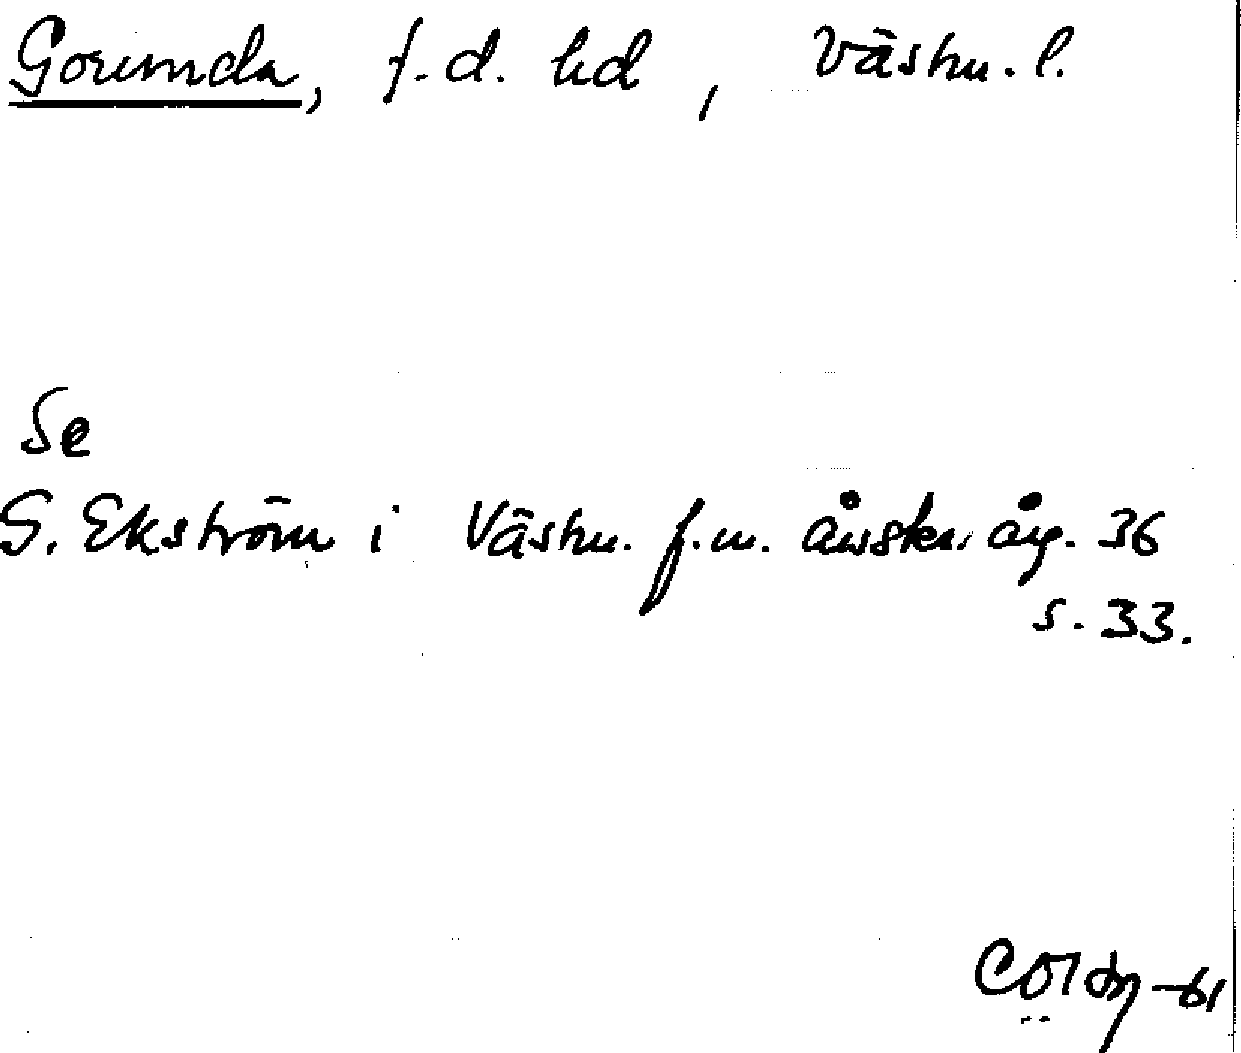 Gorunda, f.d. hd, Västm. l.
Se
G. Ekström i Västm. f.m. årsskr. årg. 36
s. 33.
-61